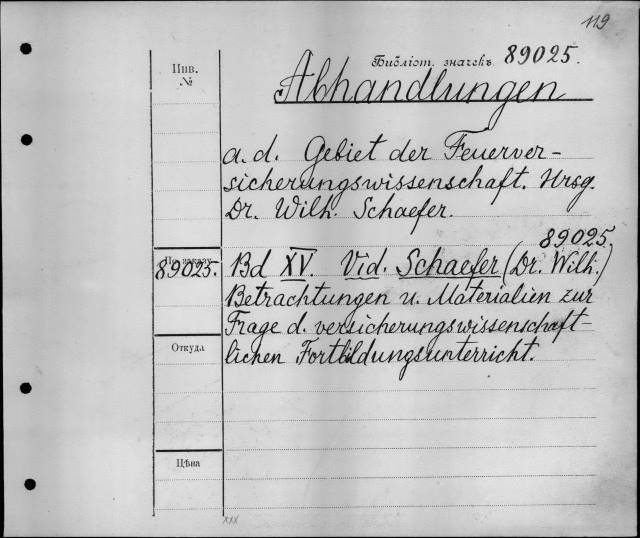 119
Инв.
№
Библіот. значекъ 89025.
Abhandlungen
a. d. Gebiet der Feuerver-
sicherungswissenschaft. Hrsg.
Dr. Wilh. Schaefer.
89025.
89025. Bd XV. Vid. Schaefer (Dr. Wilh.)
Betrachtungen u. Materialien zur
Frage d. versicherungswissenschaft-
lichen Fortbildungsunterricht.
Откуда
Цѣна
XXX